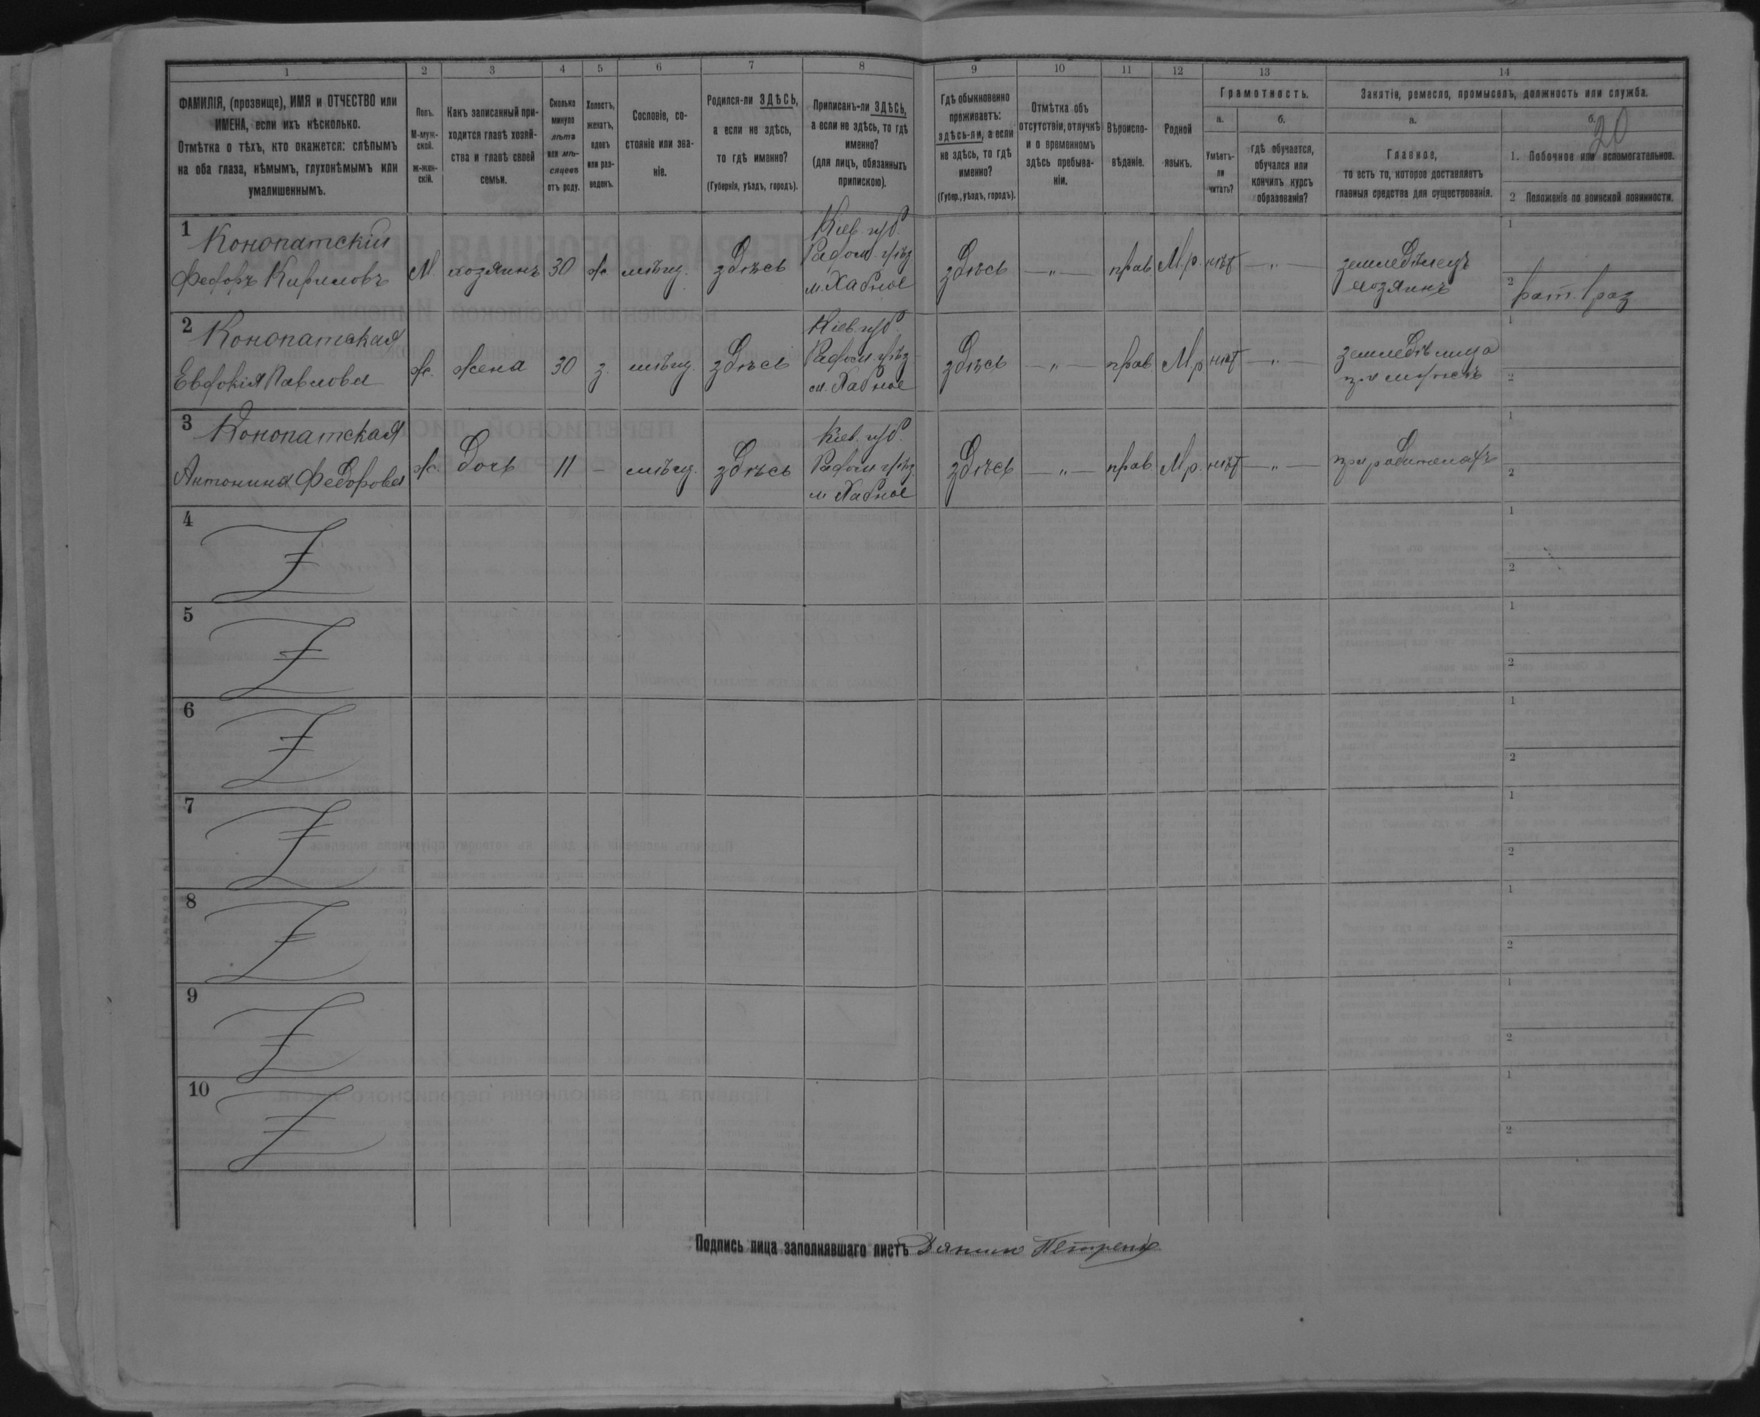 1 2 3 4 5 6 7 8 9 10 11 12 13 14
ФАМИЛІЯ, (прозвище), ИМЯ и ОТЧЕСТВО или
ИМЕНА, если ихъ нѣсколько.
Отмѣтка о тѣхъ, кто окажется: слѣпымъ
на оба глаза, нѣмымъ, глухонѣмымъ или
умалишеннымъ.
Полъ.
М-муж-
ской.
ж-жен-
скій.
Какъ записанный при-
ходится главѣ хозяй-
ства и главѣ своей
семьи.
Сколько
минуло
лѣтъ
или мѣ-
сяцевъ
отъ роду.
Холостъ,
женатъ,
вдовъ
или раз-
веденъ.
Сословіе, со-
стояніе или зва-
ніе.
Родился-ли ЗДѢСЬ,
а если не здѣсь,
то гдѣ именно?
(Губернія, уѣздъ, городъ).
Приписанъ-ли ЗДѢСЬ,
а если не здѣсь, то гдѣ
именно?
(для лицъ, обязанныхъ
припискою).
Гдѣ обыкновенно
проживаетъ:
здѣсь-ли, а если
не здѣсь, то гдѣ
именно?
(Губер., уѣздъ, городъ).
Отмѣтка объ
отсутствіи, отлучкѣ
и о временномъ
здѣсь пребыва-
ніи.
Вѣроиспо-
вѣданіе.
Родной
языкъ.
Грамотность.
а.
Умѣетъ-
ли
читать?
б.
гдѣ обучается,
обучался или
кончилъ курсъ
образованія?
Занятіе, ремесло, промыселъ, должность или служба.
а.
Главное,
то есть то, которое доставляетъ
главныя средства для существованія.
б.
20
1. Побочное или вспомогательное.
2 Положеніе по воинской повинности.
1
Конопатскій
Федоръ Кириловъ
М
хозяинъ
30
ж
мѣщ.
здѣсь
Кіев. губ
Радом. уѣзд
м. Хабное
здѣсь
— „ —
прав
М.р.
нѣт
— „ —
земледѣлецъ
хозяинъ
1
2
рат. 1 раз
2
Конопатская
Евдокія Павлова
ж.
жена
30
з.
мѣщ.
здѣсь
Кіев. губ
Радом. уѣзд
м. Хабное
здѣсь
— „ —
прав
М.р
нѣт
— „ —
земледѣлица
при мужѣ
1
2
3
Конопатская
Антонина Федорова
ж.
дочь
11
—
мѣщ.
здѣсь
Кіев. губ.
Радом. уѣзд.
м. Хабное
здѣсь
— „ —
прав
М.р.
нѣт
— „ —
при родителяхъ
1
2
4
1
2
5
1
2
6
1
2
7
1
2
8
1
2
9
1
2
10
1
2
Подпись лица заполнявшаго листъ